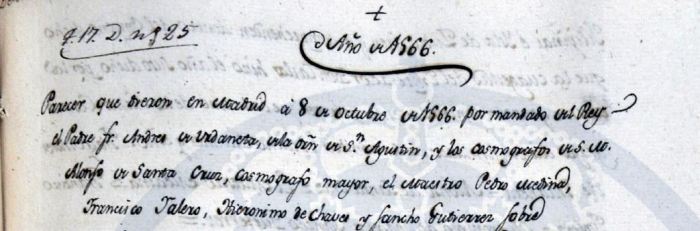 +
f. 17. D. nº 825
de Año de 1566.
Parecer que dieron en Madrid á 8 de Octubre de 1566. por mandado del Rey
el Padre fr. Andres de Urdaneta, de la orñ de S.ⁿ Agustin, y los cosmografos de S. M.
Alonso de Santa Cruz, cosmografo mayor, el Maestro Pedro Medina,
Francisco Falero, Hieronimo de Chaves y Sancho Gutierrez sobre